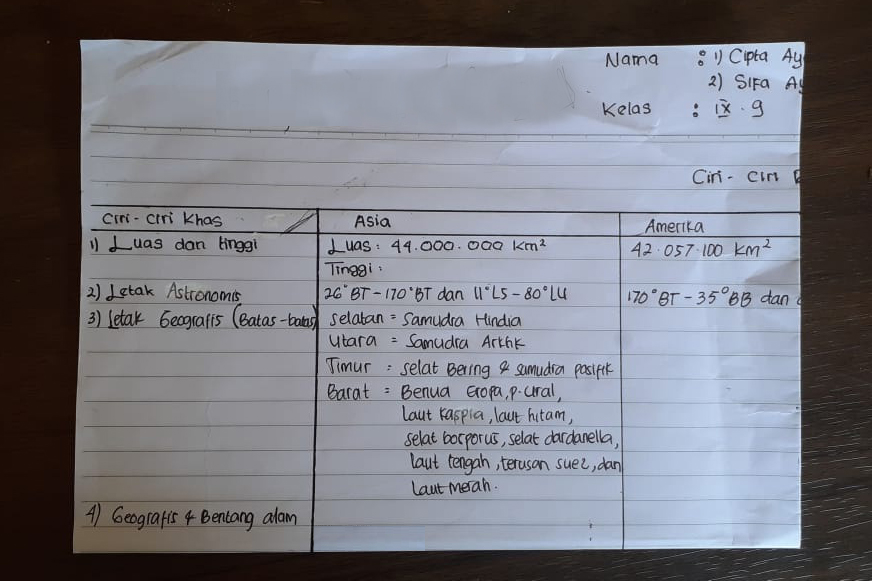 Nama : 1) Cipta Ay
2) Sifa Ay
Kelas : IX . 9
Ciri - Ciri
Ciri - Ciri Khas Asia Amerika
1) Luas dan tinggi Luas : 44.000.000 Km² 42.057.100 Km²
Tinggi :
2) Letak Astronomis 26°BT - 170°BT dan 11°LS - 80°LU 170°BT - 35°BB dan
3) Letak Geografis (Batas-batas) Selatan = Samudra Hindia
Utara = Samudra Arktik
Timur : Selat Bering & samudra pasifik
Barat = Benua Eropa, p. Ural,
Laut Kaspia, laut hitam,
selat borporus, selat dardanella,
laut tengah, terusan suez, dan
Laut Merah.
4) Geografis & Bentang alam